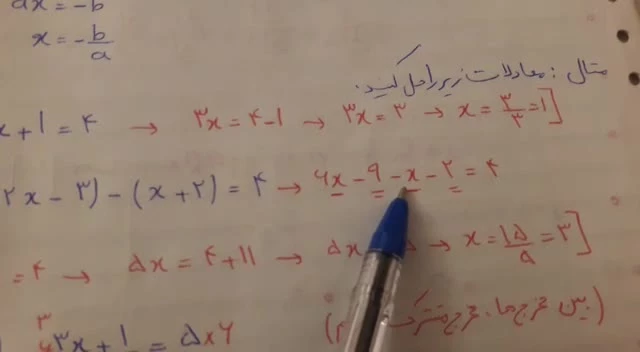 ax = -b
x = -b/a
مثال: معادلات زیر را حل کنید.
x + 1 = ۴ → ۳x = ۴-۱ → ۳x = ۳ → x = ۳/۳ = ۱]
۲x - ۳) - (x + ۲) = ۴ → ۶x - ۹ - x - ۲ = ۴
= ۴ → ۵x = ۴+۱۱ → ۵x → x = ۱۵/۵ = ۳]
(بین مخرج‌ها، مخرج مشترک
۳x + 1 = ۵x۶